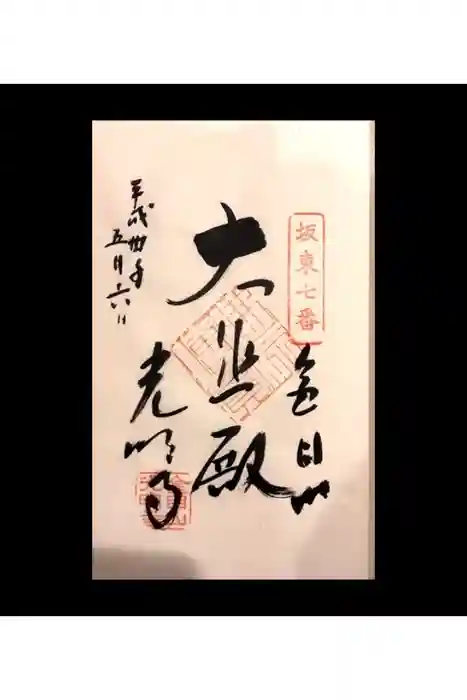 坂東七番
金目山
大悲殿
光明寺
平成卅年
五月六日